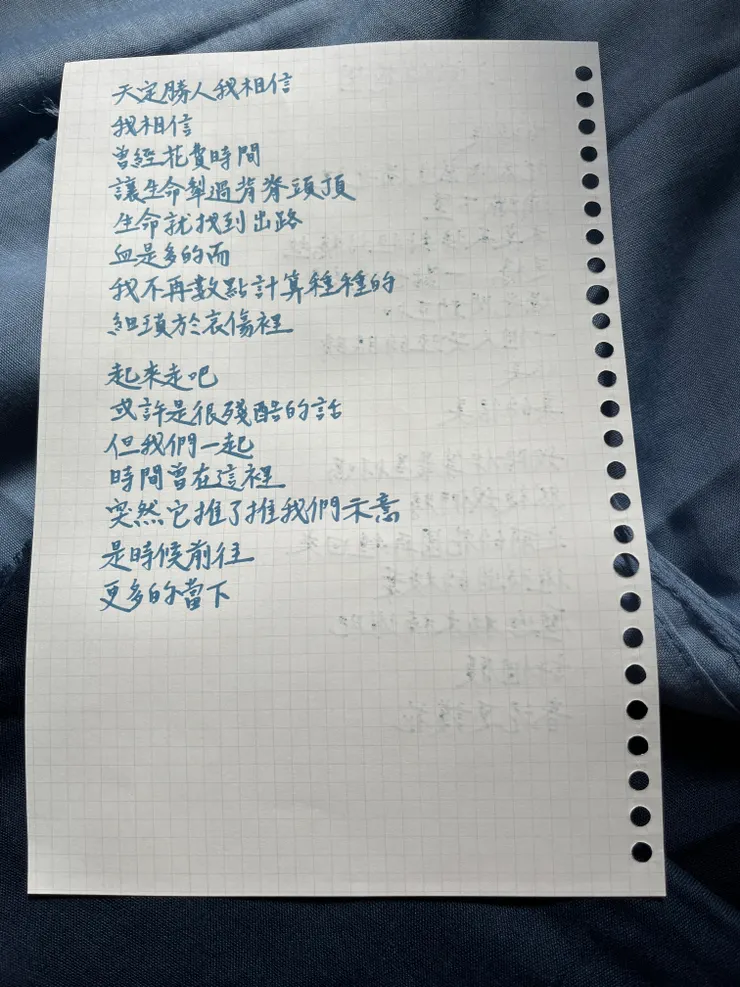 天定勝人我相信
我相信
曾經花費時間
讓生命犁過背脊頭頂
生命就找到出路
血是多的而
我不再數點計算種種的
細瑣於哀傷裡
起來走吧
或許是很殘酷的話
但我們一起
時間曾在這裡
突然它推了推我們示意
是時候前往
更多的當下